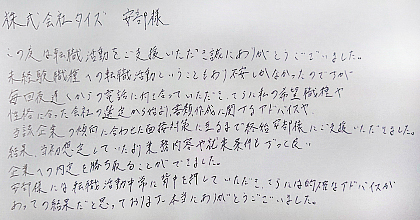 株式会社タイズ 安部様
この度は転職活動をご支援いただき誠にありがとうございました。
未経験職種への転職活動ということもあり不安しかなかったのですが
毎回夜遅くからの電話に付き合っていただき、さらに私の希望職種や
性格に合った会社の選定から始まり、書類作成に関するアドバイスや、
当該企業の傾向に合わせた面接対策に至るまで終始安部様にご支援いただきました。
結果、当初想定していたより業務内容や就業条件もずっと良い
企業への内定を勝ち取ることができました。
安部様には転職活動中常に背中を押していただき、さらには的確なアドバイスが
あっての結果だと思っております。本当にありがとうございました。